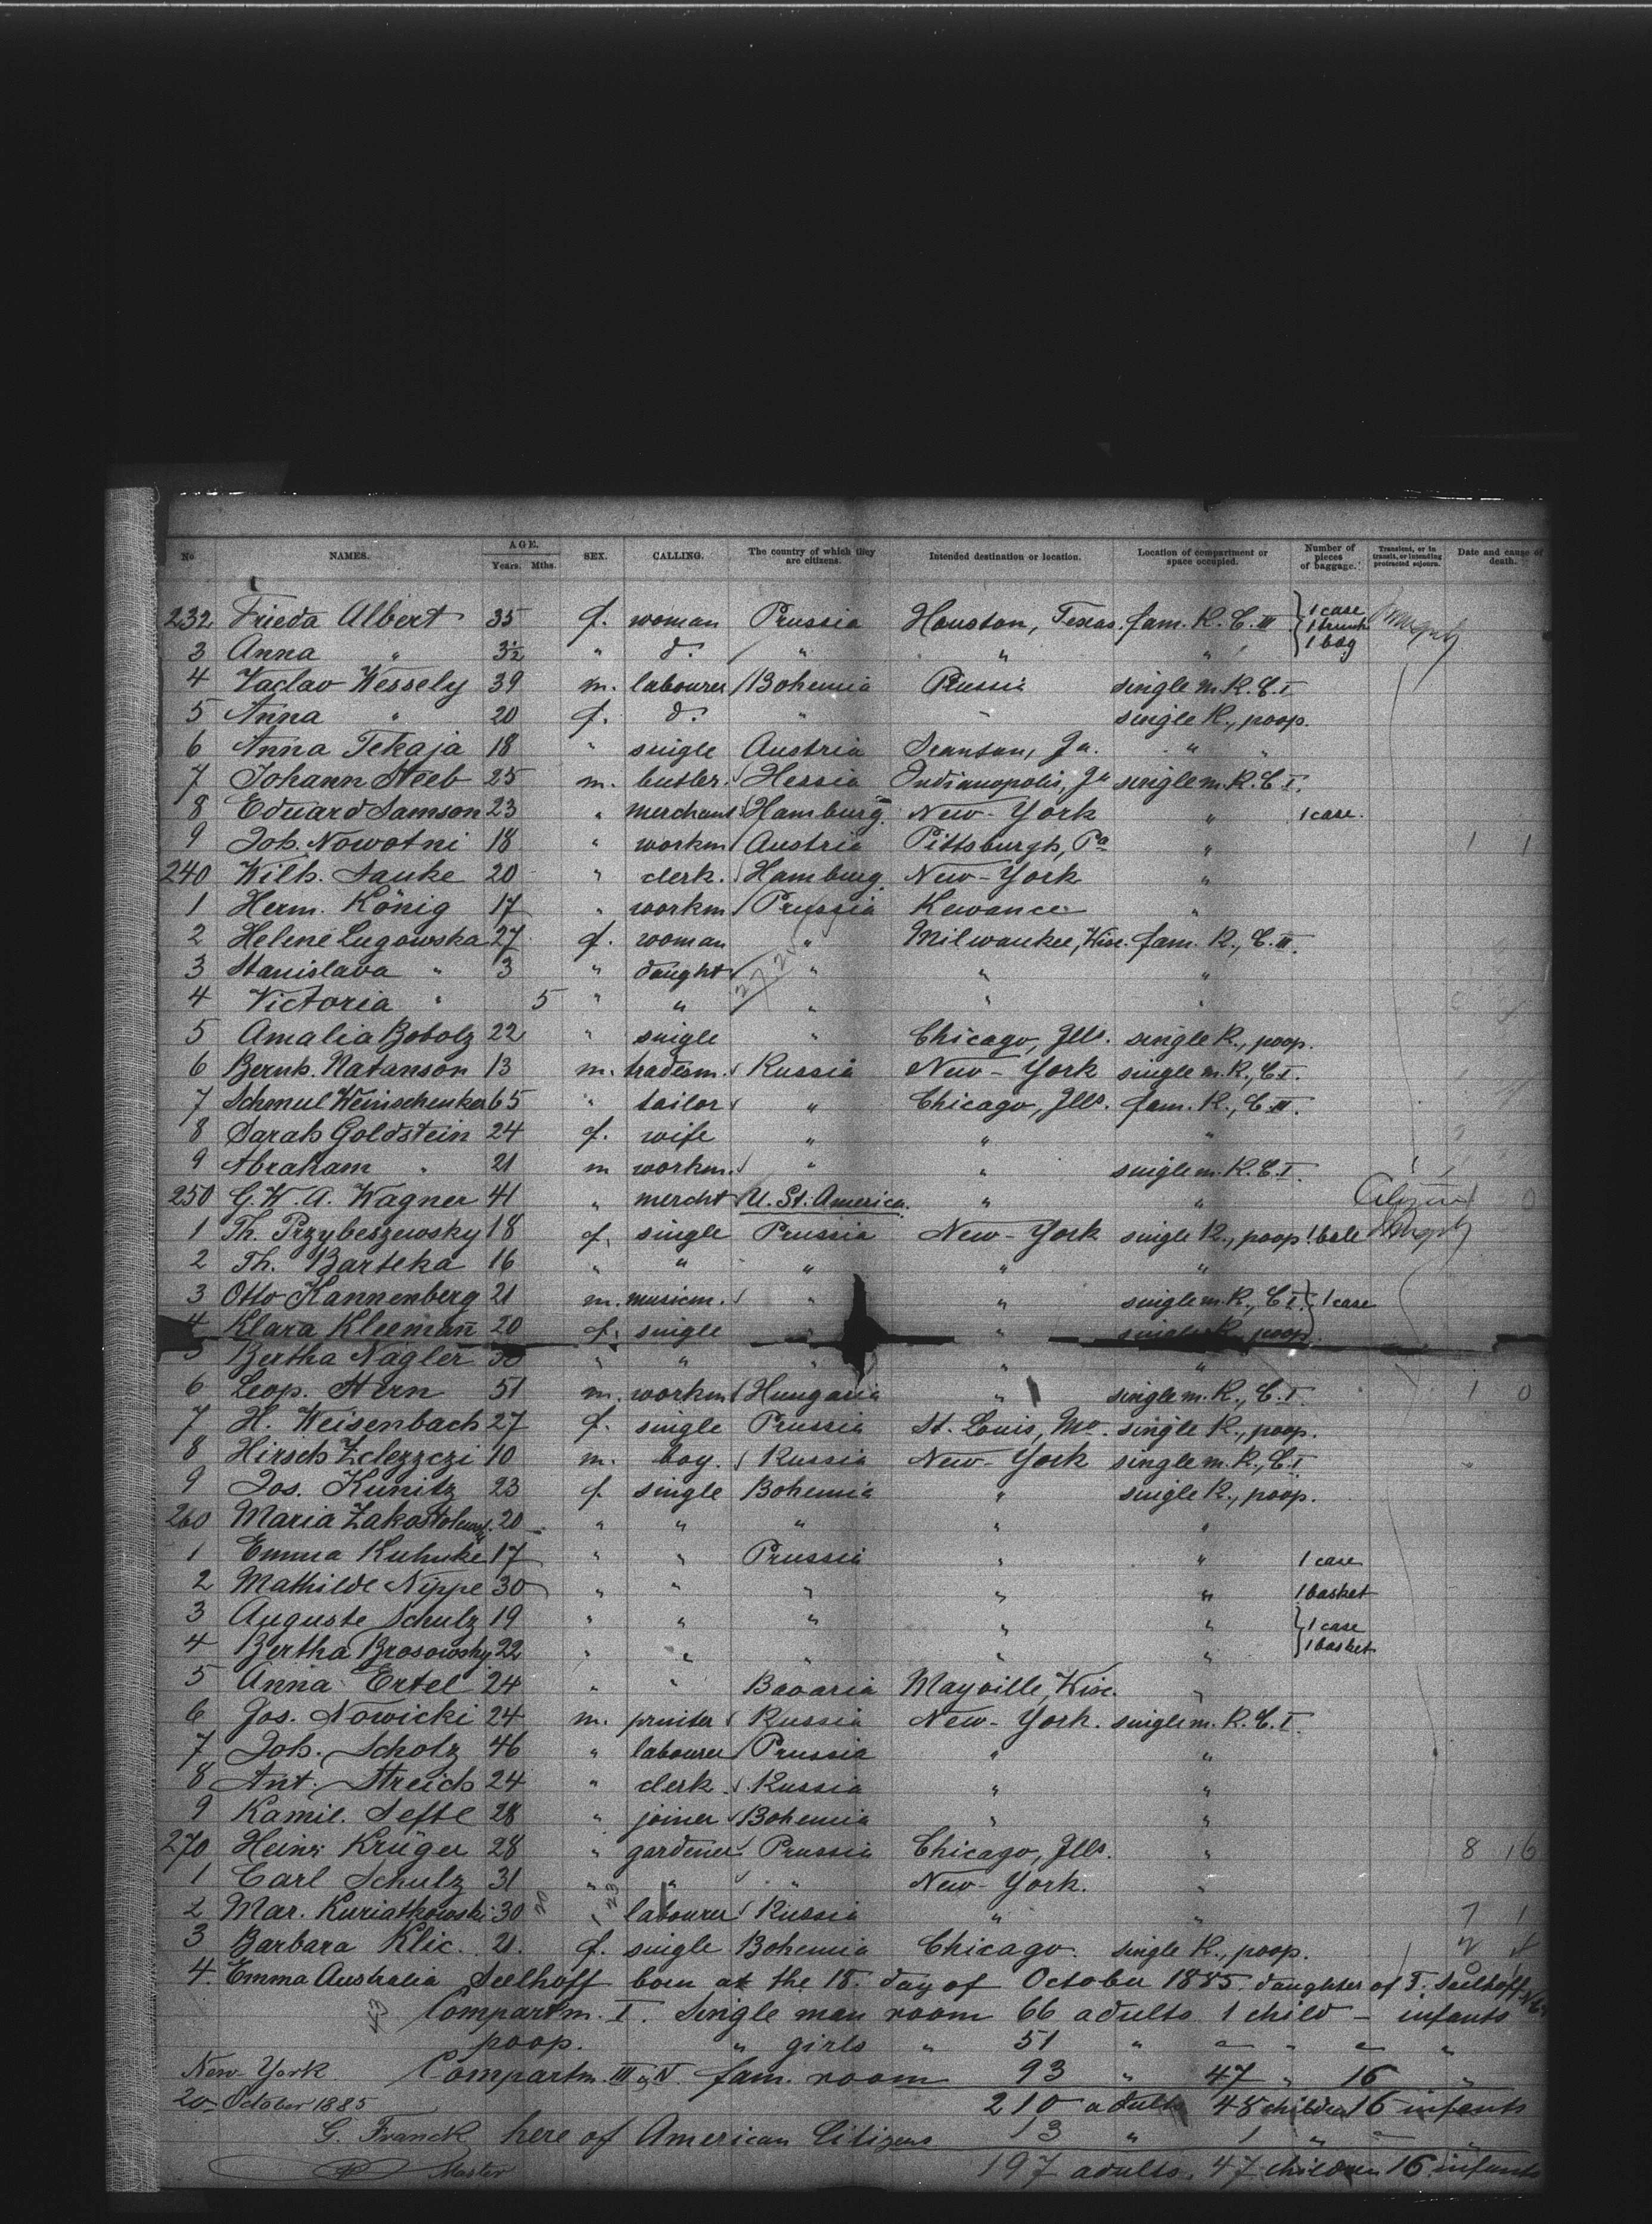 No NAMES. AGE. Years. Mths. SEX. CALLING. The country of which they are citizens. Intended destination or location. Location of compartment or space occupied. Number of pieces of baggage. Transient, or in transit, or intending protracted sojourn. Date and cause of death.
232 Frieda Albert 35 f. woman Prussia Houston, Texas. fam. R. C. III 1 case 1 trunk
3 Anna " 3½ " d. " " " 1 bag
4 Vaclav Wessely 39 m. labourer Bohemia Russia single m. R. C. I
5 Anna " 20 f. d. " " single R., poop.
6 Anna Tekaja 18 " single Austria " "
7 Johann Neeb 25 m. butler Hessia Indianopolis, Ja single m. R. C. I.
8 Eduard Samson 23 " merchant Hamburg New-York " 1 case.
9 Joh. Nowotni 18 " workm Austria Pittsburgh, Pa " 1 1
240 Wilh. Janke 20 " clerk. Hamburg. New-York "
1 Herm. König 17 " workm Prussia Kewanee "
2 Helene Lugowska 27 f. woman " Milwaukee, Wisc. fam. R., C. III.
3 Stanislava " 3 " daught " " "
4 Victoria " 5 " " " " "
5 Amalia Bobolz 22 " single " Chicago, Jlls. single R., poop.
6 Bernh. Natanson 13 m. tradesm. Russia New-York single m. R., C. I.
7 Schmul Weinschenker 65 " tailor " Chicago, Jlls. fam. R., C. III.
8 Sarah Goldstein 24 f. wife " " "
9 Abraham " 21 m workm. " " single m. R. C. I.
250 G. W. A. Wagner 41 " mercht U. St. America. " " Citizen 0
1 Th. Przybeszewsky 18 f. single Prussia New-York single R., poop 1 bale
2 Th. Barteka 16 " " " " "
3 Otto Kannenberg 21 m. musicm. " " single m. R., C. I. 1 case
4 Klara Kleemann 20 f. single " " single R., poop.
5 Bertha Nagler " " " " "
6 Leop. Stern 51 m. workm Hungaria " single m. R., C. I. 1 0
7 H. Weisenbach 27 f. single Prussia St. Louis, Mo. single R., poop.
8 Hirsch Zelezzczi 10 m. boy. Russia New-York single m. R., C. I
9 Jos. Kunitz 23 f. single Bohemia " single R., poop.
260 Maria 20 " " " " "
1 Emma Kuhnke 17 " " Prussia " " 1 case
2 Mathilde Nippe 30 " " " " " 1 basket
3 Auguste Schulz 19 " " " " " 1 case
4 Bertha Brosowsky 22 " " " " " 1 basket
5 Anna Ertel 24 " " Bavaria Mayville, Wisc. "
6 Jos. Nowicki 24 m. printer Russia New-York. single m. R. C. I.
7 Joh. Scholz 46 " labourer Prussia " "
8 Ant. Streich 24 " clerk Russia " "
9 Kamil. Seftl 28 " joiner Bohemia " "
270 Heinr. Krüger 28 " gardener Prussia Chicago, Jlls. " 8 16
1 Carl Schulz 31 " " " New-York. "
2 Mar. Kuriatkowski 30 " labourer Russia " " 7 1
3 Barbara Klic. 21. f. single Bohemia Chicago. single R., poop.
4. Emma Australia Seelhoff born at the 18. day of October 1885. daughter of T. Seelhoff
Compartm. I. Single man room 66 adults 1 child - infants
poop. " girls " 51 " " "
Compartm. III & IV. fam. room 93 " 47 " 16 "
New-York
210 adults 48 children 16 infants
20 October 1885
here of American Citizens 13 " 1 " - "
G. Franck
Master
197 adults, 47 children 16 infants